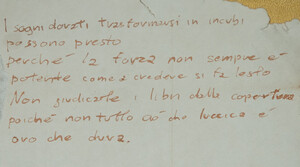 I sogni dorati trasformarsi in incubi
possono presto
perché la forza non sempre è
potente come a credere si fa lesto
Non giudicate i libri dalla copertina
poiché non tutto ciò che luccica è
oro che dura.